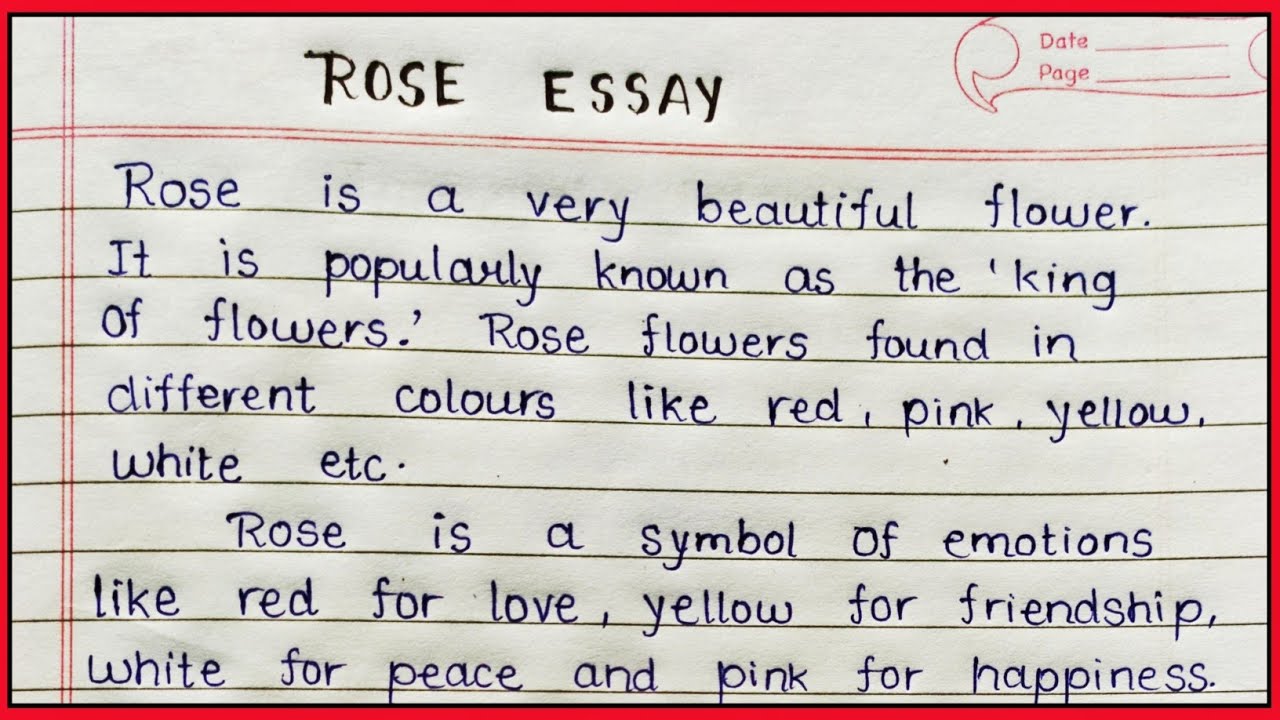 Date
Page
ROSE ESSAY
Rose is a very beautiful flower.
It is popularly known as the 'king
of flowers.' Rose flowers found in
different colours like red, pink, yellow,
white etc.
Rose is a symbol of emotions
like red for love, yellow for friendship,
white for peace and pink for happiness.